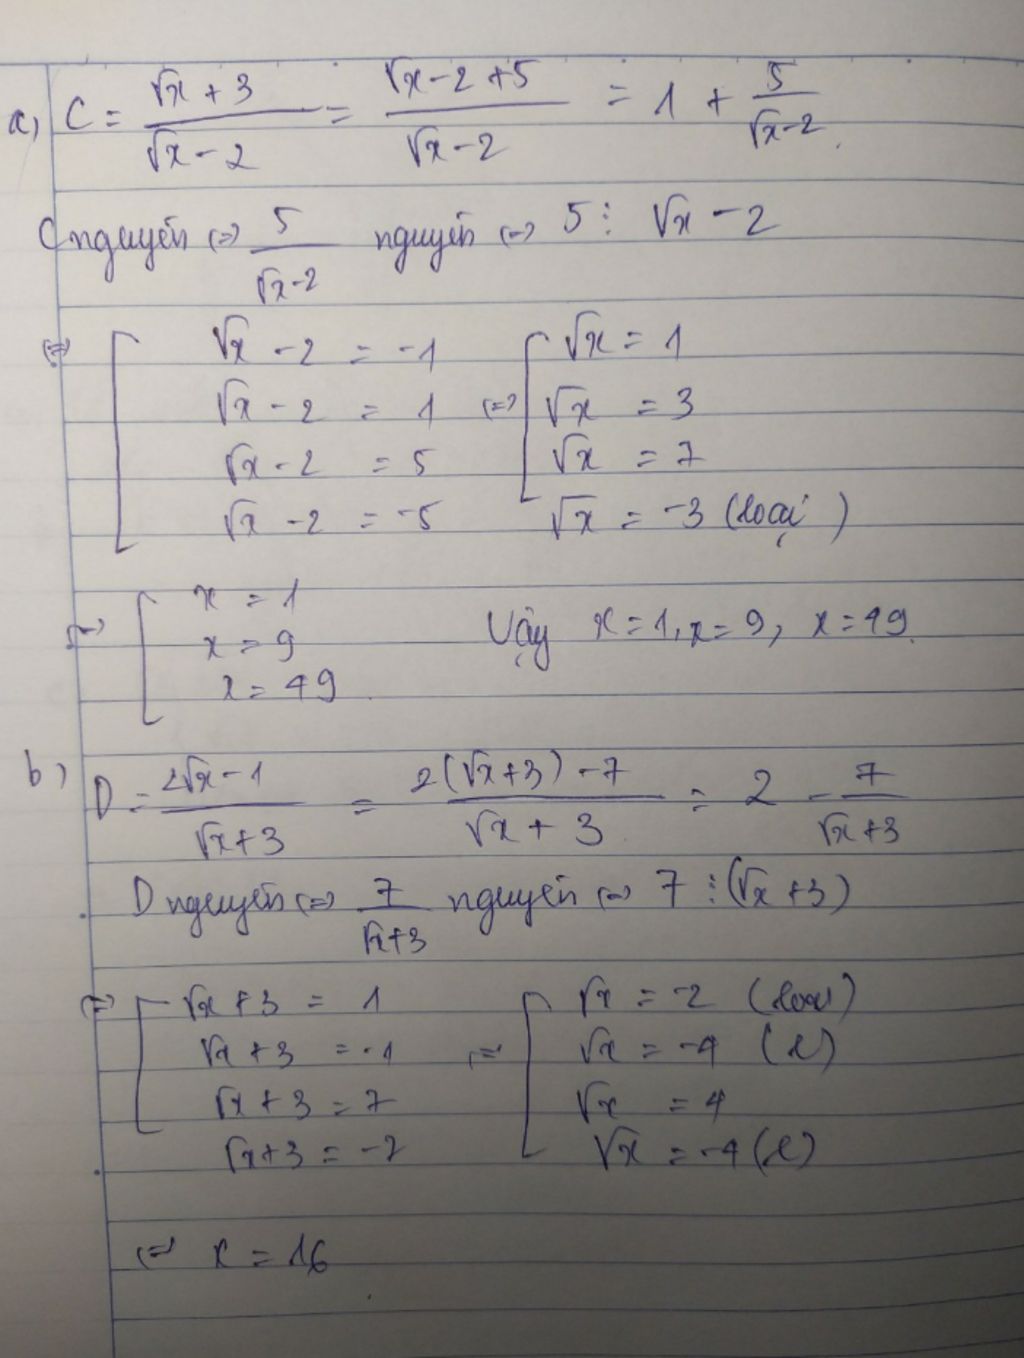 a, C = (√x + 3)/(√x - 2) = (√x - 2 + 5)/(√x - 2) = 1 + 5/(√x - 2).
C nguyên <=> 5/(√x - 2) nguyên <=> 5 ⋮ √x - 2
<=> [ √x - 2 = -1 [ √x = 1
√x - 2 = 1 <=> √x = 3
√x - 2 = 5 √x = 7
√x - 2 = -5 √x = -3 (loại)
<=> [ x = 1
x = 9 Vậy x = 1, x = 9, x = 49.
x = 49.
b, D = (2√x - 1)/(√x + 3) = (2(√x + 3) - 7)/(√x + 3) = 2 - 7/(√x + 3)
D nguyên <=> 7/(√x + 3) nguyên <=> 7 ⋮ (√x + 3)
<=> [ √x + 3 = 1 [ √x = -2 (loại)
√x + 3 = -1 <=> √x = -4 (l)
√x + 3 = 7 √x = 4
√x + 3 = -7 √x = -4 (l)
<=> x = 16